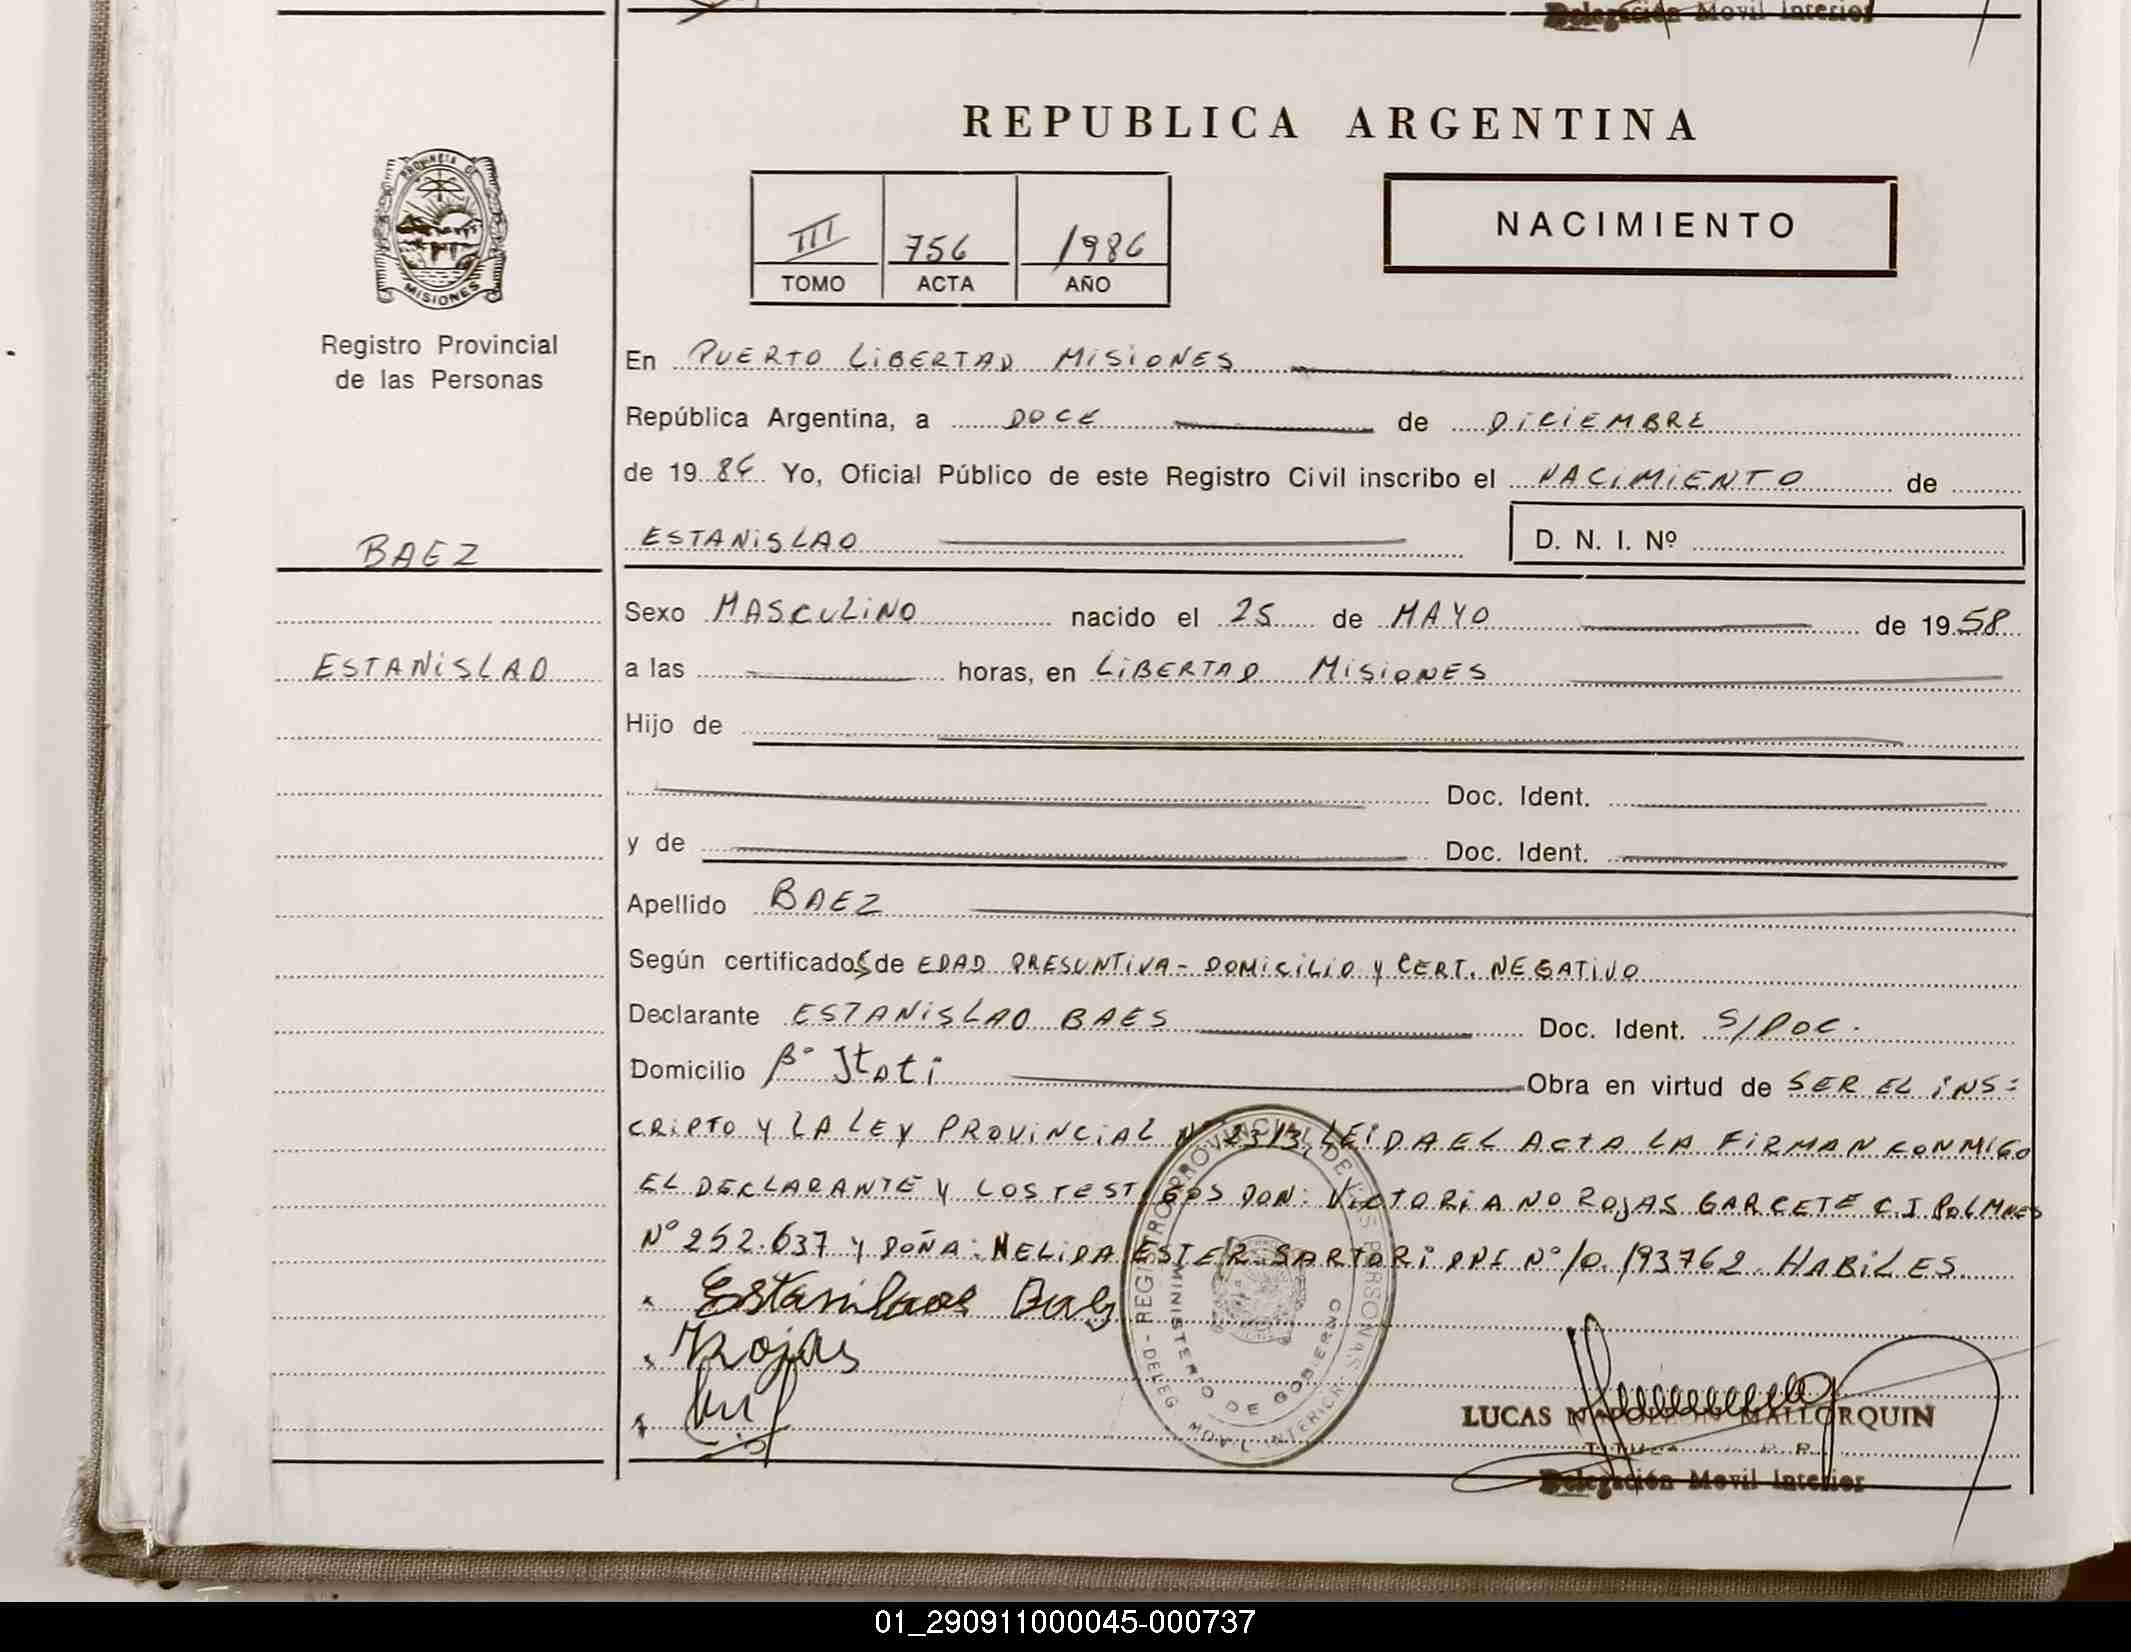 Delegación Movil Interior
REPUBLICA ARGENTINA
PROVINCIA DE
MISIONES
III 756 1986
TOMO ACTA AÑO
NACIMIENTO
Registro Provincial
de las Personas
En PUERTO LIBERTAD MISIONES
República Argentina, a DOCE de DICIEMBRE
de 19 86 Yo, Oficial Público de este Registro Civil inscribo el NACIMIENTO de
BAEZ
ESTANISLAO D. N. I. Nº
Sexo MASCULINO nacido el 25 de MAYO de 1958
ESTANISLAO
a las horas, en LIBERTAD MISIONES
Hijo de
Doc. Ident.
y de Doc. Ident.
Apellido BAEZ
Según certificadoS de EDAD PRESUNTIVA - DOMICILIO Y CERT. NEGATIVO
Declarante ESTANISLAO BAES Doc. Ident. S/DOC.
Domicilio Bº Itati Obra en virtud de SER EL INS=
CRIPTO Y LA LEY PROVINCIAL Nº 2313, LEIDA EL ACTA LA FIRMAN CONMIGO
EL DECLARANTE Y LOS TESTIGOS DON: VICTORIANO ROJAS GARCETE C I POL MNES
Nº 252.637 Y DOÑA: NELIDA ESTER SARTORI DNI Nº 10.193762. HABILES.
Rojas
REGISTRO PROVINCIAL DE LAS PERSONAS
MINISTERIO DE GOBIERNO
DELEG MOVIL INTERIOR
LUCAS NAPOLEON MALLORQUIN
Delegación Movil Interior
01_290911000045-000737